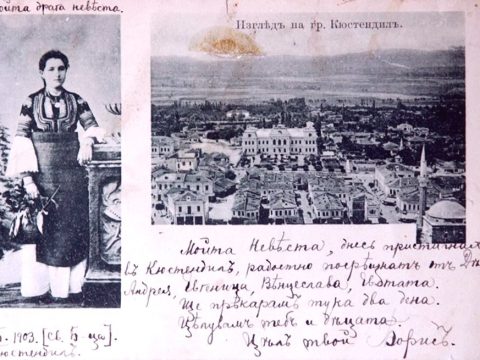 мойта драга невѣста.
Изгледъ на гр. Кюстендилъ.
Мойта Невѣста, днесь пристигнах
въ Кюстендилъ, радостно посрѣщнатъ отъ
Андрея, Вѣнцеслава,
Ще прѣкарам тука два дена.
Цѣлувамъ тебъ и дѣцата.
Цѣлъ твой Борисъ.
1903.
Кюстендилъ.